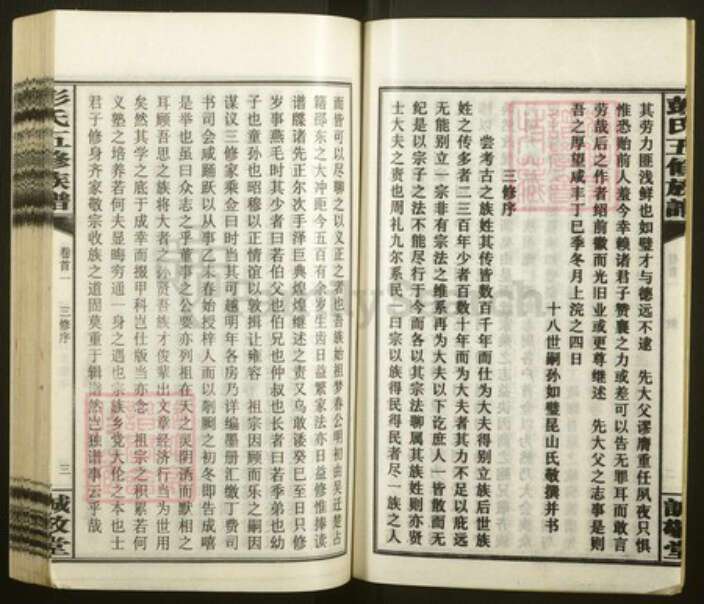 彭氏五修族譜
卷首一
誠敬堂
其劳力匪浅鲜也如璧才与德远不逮 先大父谬膺重任夙夜只惧
惟恐贻前人羞今幸赖诸君子赞襄之力或差可以告无罪耳而敢言
劳哉后之作者绍前徽而光旧业或更尊继述 先大父之志事是则
吾之厚望咸丰丁巳季冬月上浣之四日
十八世嗣孙如璧昆山氏敬撰并书
三修序
尝考古之族姓其传皆数百千年而仕为大夫得别立族后世族
姓之传多者二三百年少者百数十年而为大夫者其力不足以庇远
无能别立一宗非有宗法之维系再为大夫以下讫庶人一皆散而无
纪是以宗子之法不能尽行于今而各以其宗法聊属其族姓则亦贤
士大夫之责也周礼九尔系民一曰宗以族得民得民者尽一族之人
而皆可以尽聊之以义正之者也吾族始祖梦春公明初由吴迁楚占
籍邵东之大冲距今五百有余岁生齿日益繁家法亦日益修惟捧读
谱牒诸先正尔次手泽巨典煌煌继述之责又乌敢诿癸巳至日只修
岁事燕毛时其少者曰若伯父也伯兄也仲叔也长者曰若季弟也幼
子也童孙也昭穆以正情馆以敦揖让雍容 祖宗因顾而乐之嗣因
谋议三修家乘佥曰时当其可越明年各房乃详编墨册汇缴丁费司
书司会咸踊跃以从事乙未春始授梓人而以剞劂之初冬即告成嘻
是举也虽曰众志之乎董事之公要亦列祖在天之灵阴洒而默相之
耳顾吾思之族将大者之孙贤吾族才俊辈出文章经济行当为世用
矣然其学之底于成幸而掇甲科岂仕版当亦念 祖宗之积累若何
义塾之培养若何夫显晦穷通一身之遇也宗族乡党大伦之本也士
君子修身齐家敬宗收族之道固莫重于辑 然岂独谱事云乎哉
彭氏五修族譜
卷首一
三修序
三
誠敬堂